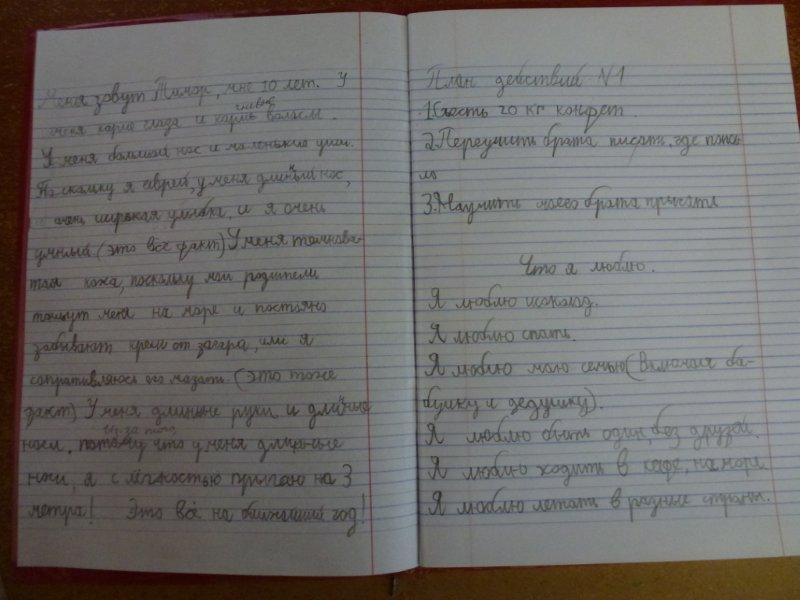 Меня зовут Тимор, мне 10 лет. У
меня карие глаза и карие волосы.
У меня большой нос и маленькие уши.
По скольку я еврей, у меня длиный нос,
очень широкая улыбка, и я очень
умный. (это всё факт) У меня темнова-
тая кожа, поскольку мои родители
тащут меня на море и постояно
забывают крем от загара, или я
сапративляюсь его мазать. (это тоже
факт) У меня длиные руки и длиные
ноги, потому что у меня длиные
из-за того
ноги, я с лёгкостью прыгаю на 3
метра! Это всё на ближайший год!
План действий N1
1. Съесть 20 кг конфет.
2. Переучить брата писать, где попа
ло
3. Научить моего брата прыгать
Что я люблю.
Я люблю шоколад.
Я люблю спать.
Я люблю мою семью (Включая ба-
бушку и дедушку).
Я люблю быть один, без друзей.
Я люблю ходить в кафе, на море
Я люблю летать в разные страны.